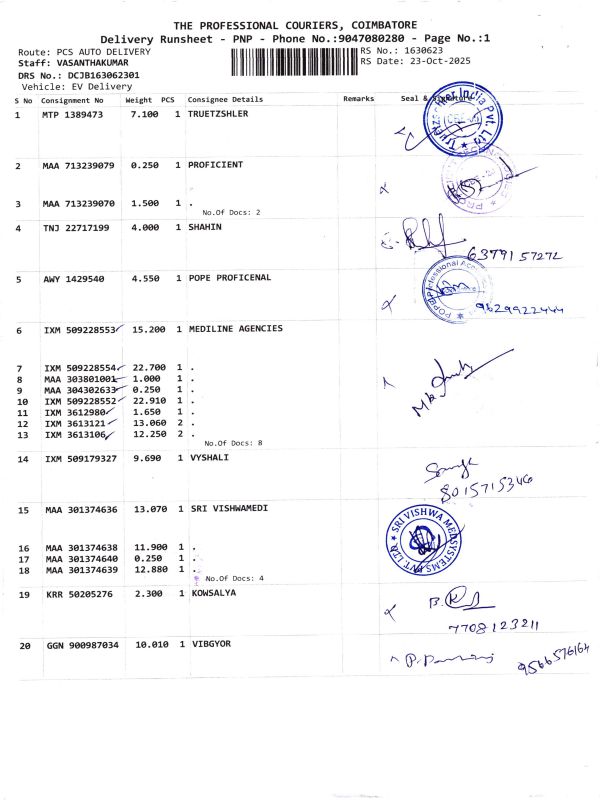 THE PROFESSIONAL COURIERS, COIMBATORE
Delivery Runsheet - PNP - Phone No.:9047080280 - Page No.:1
Route: PCS AUTO DELIVERY
RS No.: 1630623
Staff: VASANTHAKUMAR
RS Date: 23-Oct-2025
DRS No.: DCJB163062301
Vehicle: EV Delivery
S No Consignment No Weight PCS Consignee Details Remarks Seal &
1 MTP 1389473 7.100 1 TRUETZSHLER
2 MAA 713239079 0.250 1 PROFICIENT
3 MAA 713239070 1.500 1 .
No.Of Docs: 2
4 TNJ 22717199 4.000 1 SHAHIN
6379157272
5 AWY 1429540 4.550 1 POPE PROFICENAL
9629922444
6 IXM 509228553 15.200 1 MEDILINE AGENCIES
7 IXM 509228554 22.700 1 .
8 MAA 303801001 1.000 1 .
9 MAA 304302633 0.250 1 .
10 IXM 509228552 22.910 1 .
11 IXM 3612980 1.650 1 .
12 IXM 3613121 13.060 2 .
13 IXM 3613106 12.250 2 .
No.Of Docs: 8
14 IXM 509179327 9.690 1 VYSHALI
8015715346
15 MAA 301374636 13.070 1 SRI VISHWAMEDI
SRI VISHWA MEDSYSTEMS PVT. LTD
16 MAA 301374638 11.900 1 .
17 MAA 301374640 0.250 1 .
18 MAA 301374639 12.880 1 .
No.Of Docs: 4
19 KRR 50205276 2.300 1 KOWSALYA
7708123211
20 GGN 900987034 10.010 1 VIBGYOR
9566576164